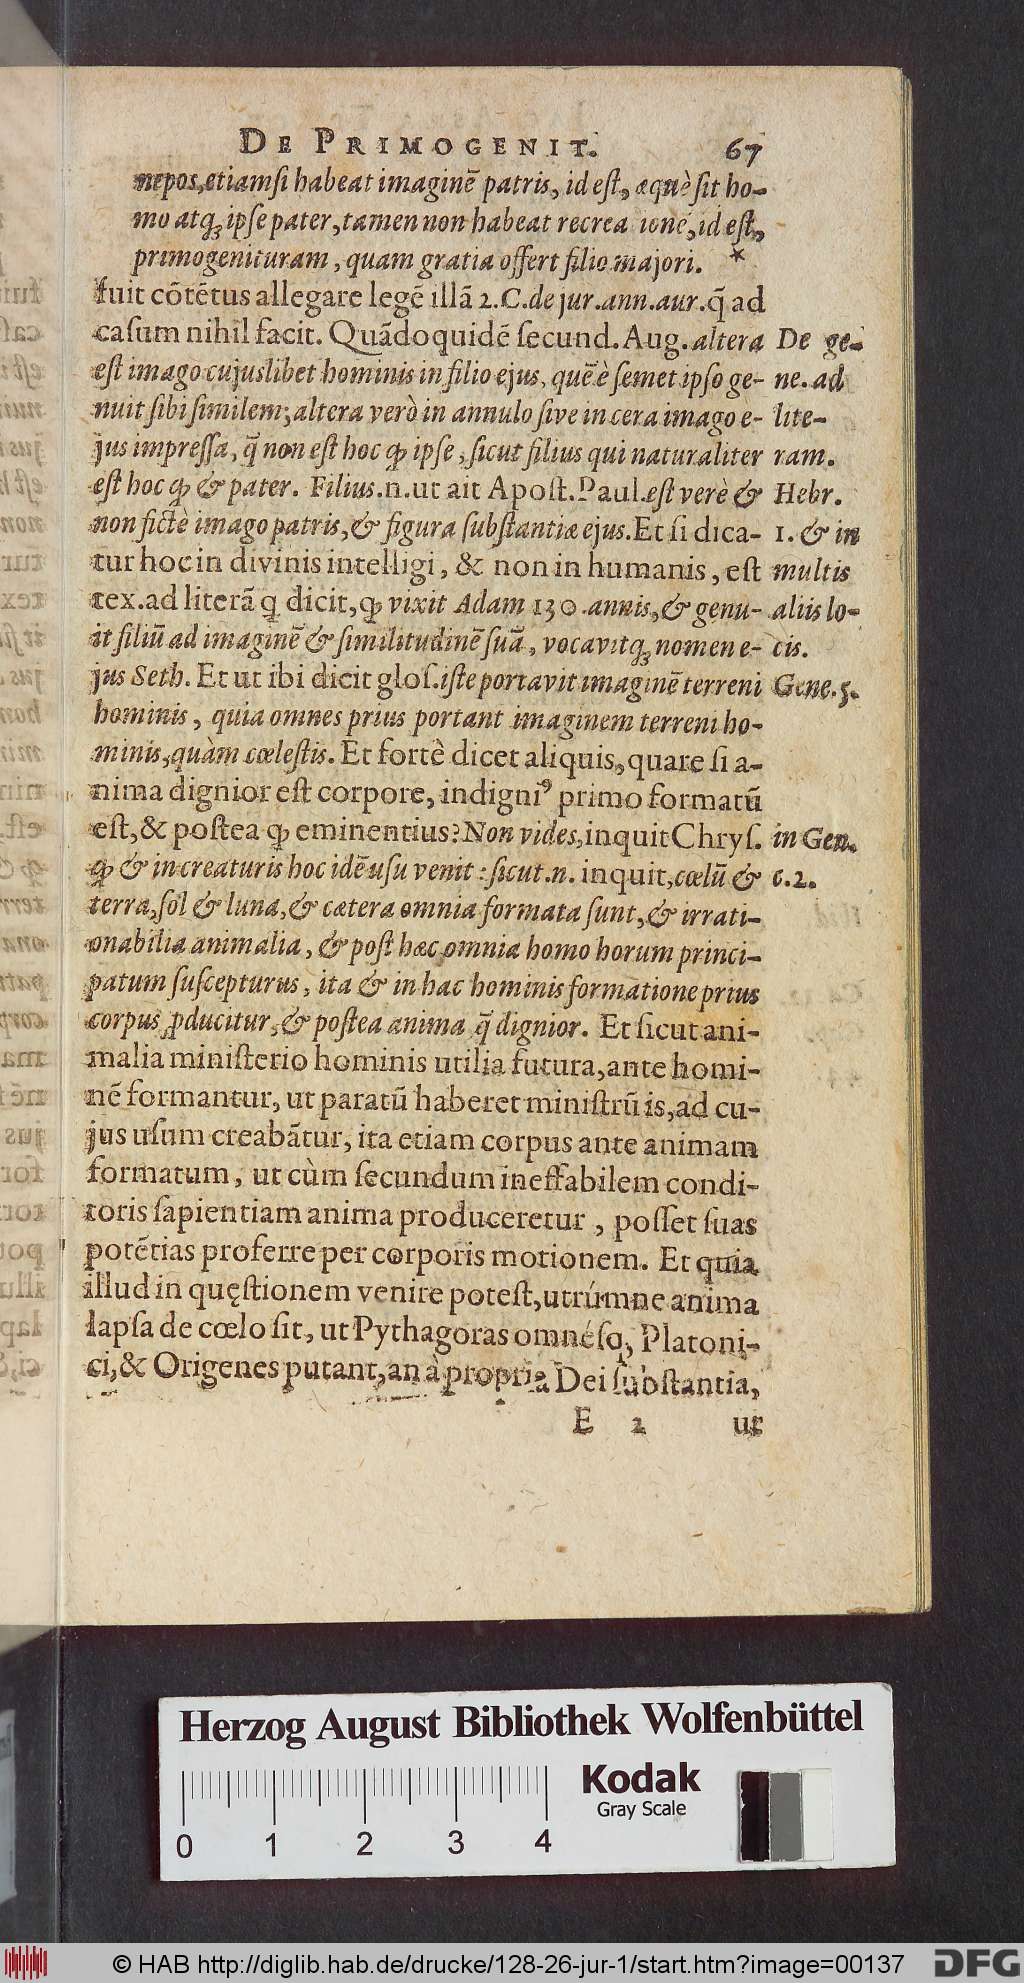 DE PRIMOGENIT. 67
nepos, etiamsi habeat imaginē patris, id est, æquè sit ho-
mo atq́ꝫ ipse pater, tamen non habeat recrea ionē, id est,
primogenituram, quam gratia offert filio majori. *
fuit cōtētus allegare legē illā 2. C. de jur. ann. aur. q̄ ad
casum nihil facit. Quādoquidē secund. Aug. altera
est imago cujuslibet hominis in filio ejus, quē è semet ipso ge-
nuit sibi similem; altera verò in annulo sive in cera imago e-
jus impressa, q̄ non est hoc qꝫ ipse, sicut filius qui naturaliter
est hoc qꝫ & pater. Filius .n. ut ait Apost. Paul. est verè &
non fictè imago patris, & figura substantiæ ejus. Et si dica-
tur hoc in divinis intelligi, & non in humanis, est
tex. ad literā q̄ dicit, qꝫ vixit Adam 130. annis, & genu-
it filiū ad imaginē & similitudinē suā, vocavitq́ꝫ nomen e-
jus Seth. Et ut ibi dicit glos. iste portavit imaginē terreni
hominis, quia omnes prius portant imaginem terreni ho-
minis, quàm cœlestis. Et fortè dicet aliquis, quare si a-
nima dignior est corpore, indigniꝰ primo formatū
est, & postea qꝫ eminentius? Non vides, inquit Chrys.
qꝫ & in creaturis hoc idē usu venit: sicut .n. inquit, cœlū &
terra, sol & luna, & cætera omnia formata sunt, & irrati-
onabilia animalia, & post hæc omnia homo horum princi-
patum suscepturus, ita & in hac hominis formatione prius
corpus ꝓducitur, & postea anima q̄ dignior. Et sicut ani-
malia ministerio hominis utilia futura, ante homi-
nē formantur, ut paratū haberet ministrū is, ad cu-
jus usum creabātur, ita etiam corpus ante animam
formatum, ut cùm secundum ineffabilem condi-
toris sapientiam anima produceretur, posset suas
potētias proferre per corporis motionem. Et quia
illud in quęstionem venire potest, utrúmne anima
lapsa de cœlo sit, ut Pythagoras omnésq́ꝫ Platoni-
ci, & Origenes putant, an à propria Dei substantia,
E 2 ut
De ge-
ne. ad
lite-
ram.
Hebr.
1. & in
multis
aliis lo-
cis.
Gene. 5.
in Gen.
c. 2.
Herzog August Bibliothek Wolfenbüttel
Kodak
Gray Scale
0 1 2 3 4
© HAB http://diglib.hab.de/drucke/128-26-jur-1/start.htm?image=00137
DFG